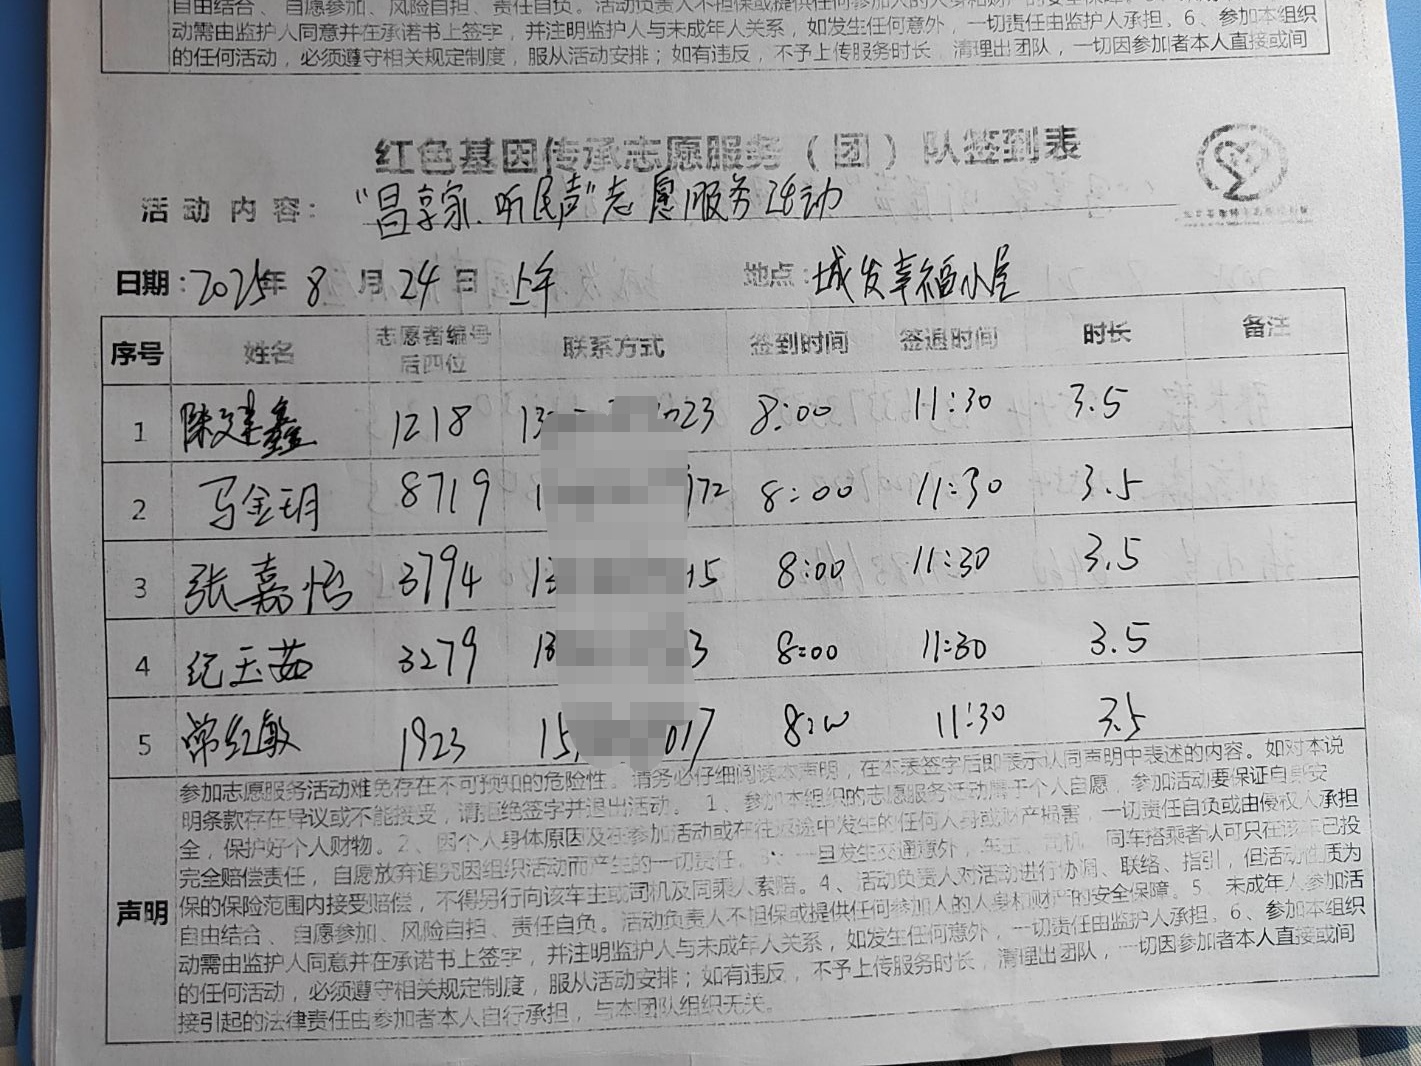 自由结合、自愿参加、风险自担、责任自负。活动负责人不担保或提供任何参加人的人身和财产的安全保障。
动需由监护人同意并在承诺书上签字，并注明监护人与未成年人关系，如发生任何意外，一切责任由监护人承担，6、参加本组织
的任何活动，必须遵守相关规定制度，服从活动安排；如有违反，不予上传服务时长，清理出团队，一切因参加者本人直接或间
红色基因传承志愿服务（团）队签到表
活动内容：“昌享家、听民声”志愿服务活动
日期：2025年8月24日 上午 地点：城发幸福小屋
序号 姓名 志愿者编号后四位 联系方式 签到时间 签退时间 时长 备注
1 陈建鑫 1218 8:00 11:30 3.5
2 马金玥 8719 172 8:00 11:30 3.5
3 张嘉怡 3794 13 15 8:00 11:30 3.5
4 纪玉茹 3279 13 3 8:00 11:30 3.5
5 常红敏 1923 15 017 8:00 11:30 3.5
声明
参加志愿服务活动难免存在不可预知的危险性。请务必仔细阅读本声明，在本表签字后即表示认同声明中表述的内容。如对本说
明条款存在异议或不能接受，请拒绝签字并退出活动。1、参加本组织的志愿服务活动属于个人自愿，参加活动要保证自身安
全，保护好个人财物。2、因个人身体原因及在参加活动或在往返途中发生的任何人身或财产损害，一切责任自负或由侵权人承担
完全赔偿责任，自愿放弃追究因组织活动而产生的一切责任。3、一旦发生交通意外，车主、司机、同车搭乘者认可只在该车已投
保的保险范围内接受赔偿，不得另行向该车主或司机及同乘人索赔。4、活动负责人对活动进行协调、联络、指引，但活动性质为
自由结合、自愿参加、风险自担、责任自负。活动负责人不担保或提供任何参加人的人身和财产的安全保障。5、未成年人参加活
动需由监护人同意并在承诺书上签字，并注明监护人与未成年人关系，如发生任何意外，一切责任由监护人承担，6、参加本组织
的任何活动，必须遵守相关规定制度，服从活动安排；如有违反，不予上传服务时长，清理出团队，一切因参加者本人直接或间
接引起的法律责任由参加者本人自行承担，与本团队组织无关。